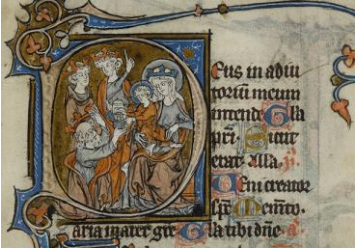 Eus in adiu
toriū meum
intende Gla
pri. Sicut
erat Alla. p̄.
Veni creator
sp̄c memto.
aria mater gr̄e
la tibi dn̄e